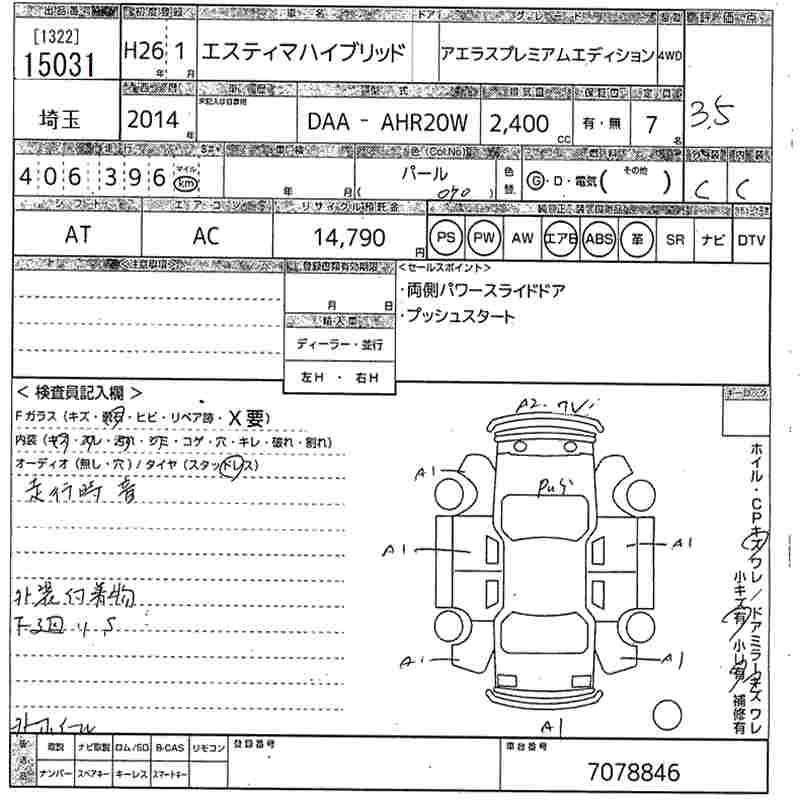 出品番号 初度登録 車名 ドア グレード
[1322]
15031
H26 1 エスティマハイブリッド アエラスプレミアムエディション 4WD
年 月
埼玉
2014 年 DAA - AHR20W 2,400 CC 有・無 7 名
3.5
406,396 マイル km
年 月 パール ( 070 ) 色替 G・D・電気( その他 ) C C
シフト エアコン リサイクル預託金
AT AC 14,790 円 PS PW AW エアB ABS 革 SR ナビ DTV
<注意事項> 登録書類有効期限 <セールスポイント>
月 日
・両側パワースライドドア
・プッシュスタート
輸入車
ディーラー・並行
左H ・ 右H
< 検査員記入欄 >
キーロック
Fガラス(キズ・飛石・ヒビ・リペア跡・X要)
内装(キズ・スレ・汚れ・シミ・コゲ・穴・キレ・破れ・割れ)
オーディオ(無し・穴)/タイヤ(スタッドレス)
走行時 音
外装付着物
下3回 サS
外ホイール
A2・ワレ
A1
A1
A1
A1
A1
A1
ホイル・CPキズワレ/ドアミラーキズワレ
小キズ有 小凹有 補修有
後送品 取説 ナビ取説 ロム/SD B-CAS リモコン 登録番号 車台番号
ナンバー スペアキー キーレス スマートキー
7078846